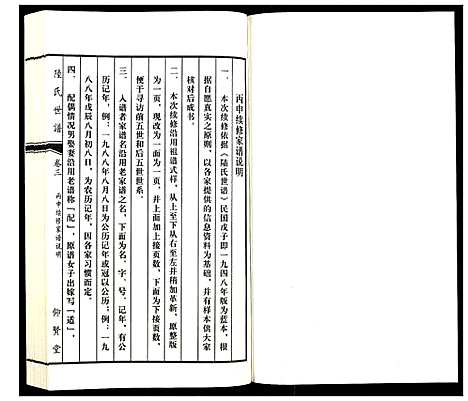 丙申续修家谱说明
一、本次续修依据《陆氏世谱》民国戊子即一九四八年版为蓝本，根
据自愿真实之原则，以各家提供的信息资料为基础，并有样本供大家
核对后成书。
二、本次续修沿用祖谱式样，从上至下从右至左并稍加革新，原整版
为一页，现改为一面为一页，并上面加上接页数，下面为下接页数，
便于寻访前五世和后五世世系。
三、入谱者家谱名沿用老家谱之名，下面为名、字、号，记年，有公
历记年，例：一九八八年八月八日为公历记年或冠以公历；例：一九
八八年戊辰八月初八日，为农历记年，因各家习惯而定。
四、配偶情况男娶妻沿用老谱称「配」，原谱女子出嫁写「适」，
陆氏世谱 卷三 丙申续修家谱说明 仰贤堂